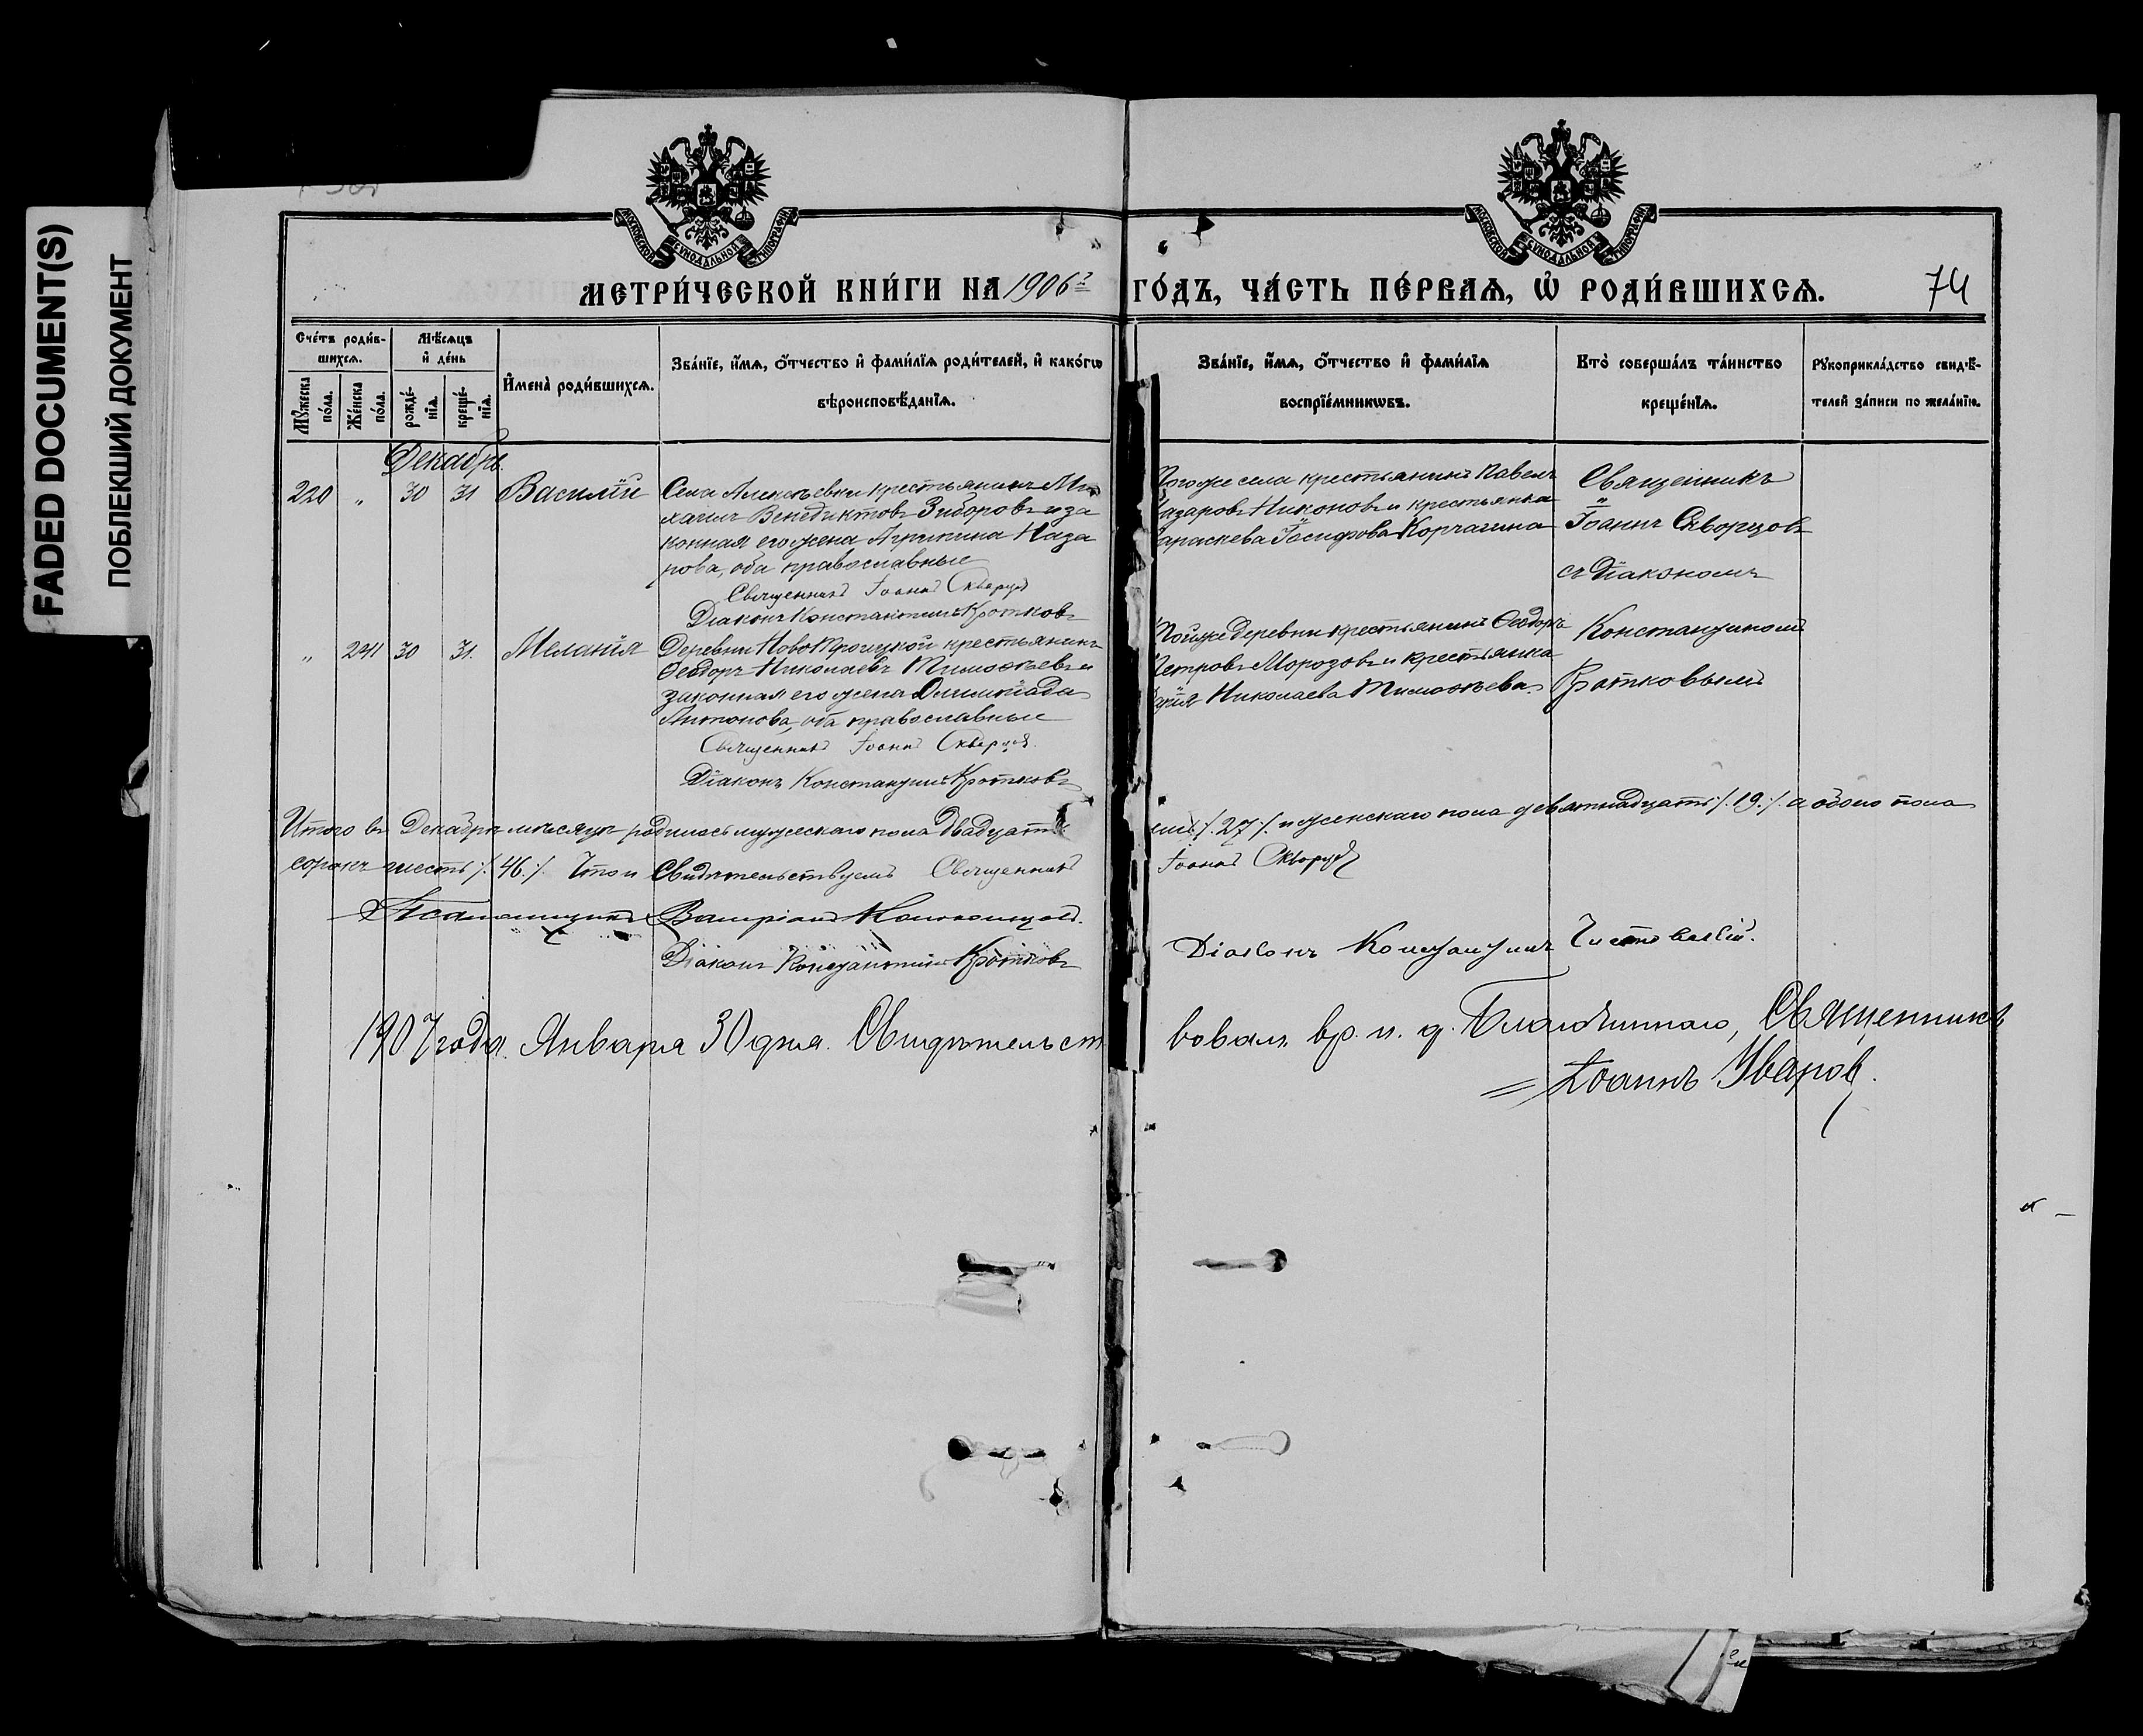 FADED DOCUMENT(S)
ПОБЛЕКШИЙ ДОКУМЕНТ
МОСКОВСКОЙ СѴНОДАЛЬНОЙ ТИПОГРАФІИ
МОСКОВСКОЙ СѴНОДАЛЬНОЙ ТИПОГРАФІИ
МЕТРИ́ЧЕСКОЙ КНИ́ГИ НА 1906 г. ГО́ДЪ, ЧА́СТЬ ПЕ́РВАѦ, Ѡ҆ РОДИ́ВШИХСѦ. 74
Сче́тъ роди́в-
шихсѧ.
Мꙋ́жеска по́ла.
Же́нска по́ла.
Мѣ́сѧцъ
и҆ де́нь
рожде́-нїѧ.
креще́-нїѧ.
И҆мена̀ роди́вшихсѧ.
Зва́нїе, и҆́мѧ, ѻ҆́тчество и҆ фами́лїѧ роди́телей, и҆ како́гѡ
вѣроисповѣ́данїѧ.
Зва́нїе, и҆́мѧ, ѻ҆́тчество и҆ фами́лїѧ
воспрїе́мникѡвъ.
Кто̀ соверша́лъ та́инство
креще́нїѧ.
Рꙋкоприкла́дство свидѣ́-
телей за́писи по жела́нїю.
Декабрь.
220 „ 30 31 Василій
Села Алексѣевки крестьянинъ Ми
хаилъ Венедиктовъ Зиборовъ и за
конная его жена Агрипина Наза
рова, оба православные
Священникъ Іоаннъ Скворцовъ
Діаконъ Константинъ Кротковъ
Тогоже села крестьянинъ Павелъ
Назаровъ Никоновъ и крестьянка
Параскева Іосифова Корчагина
Священникъ
Іоаннъ Скворцовъ
съ Діакономъ
Константиномъ
Кротковымъ
„ 241 30 31. Меланія
Деревни Ново Троицкой крестьянинъ
Ѳеодоръ Николаевъ Тимоѳѣевъ и
законная его жена Олимпіада
Антонова, оба православные
Священникъ Іоаннъ Скворцовъ.
Діаконъ Константинъ Кротковъ
Тойже деревни крестьянинъ Ѳеодоръ
Петровъ Морозовъ и крестьянка
Николаева Тимоѳѣева.
Итого въ Декабрѣ мѣсяцѣ родилось мужескаго пола двадцать семь /. 27 /. и женскаго пола девятнадцать /. 19 /. а обоего пола
сорокъ шесть /. 46 /. Что и свидѣтельствуемъ Священникъ Іоаннъ Скворцовъ
Псаломщикъ Валеріанъ
Діаконъ Константинъ Кротковъ
Діаконъ Константинъ
1907 года. Января 30 дня. Свидѣтельствовалъ вр. и. д. Благочиннаго, Священникъ
Іоаннъ Уваровъ.